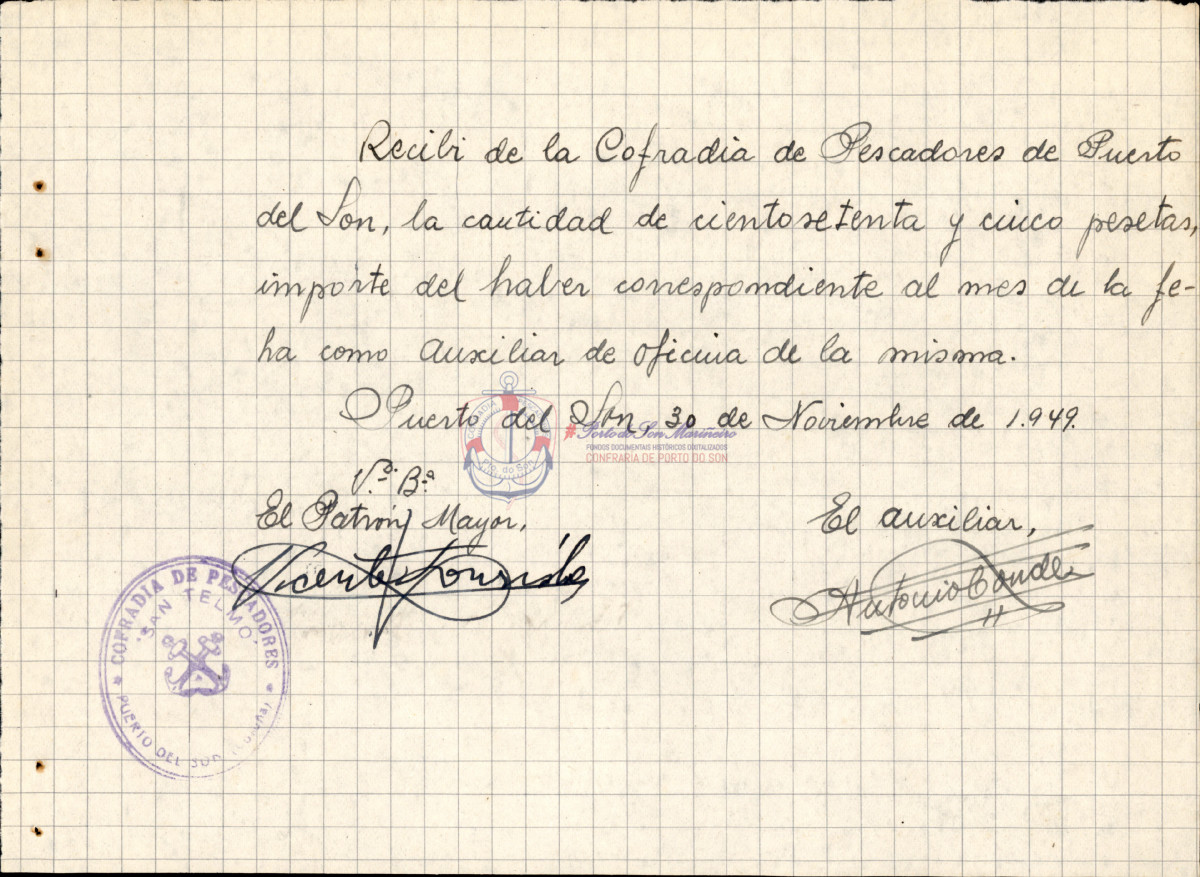 Recibi de la Cofradia de Pescadores de Puerto
del Son, la cantidad de cientosetenta y cinco pesetas,
importe del haber correspondiente al mes de la fe-
ha como auxiliar de oficina de la misma.
Puerto del Son 30 de Noviembre de 1.949.
#Porto do Son Mariñeiro
FUNDOS DOCUMENTAIS HISTÓRICOS DIXITALIZADOS
CONFRARÍA DE PORTO DO SON
Pto. do Son
V.º B.ª
El Patrón Mayor,
El auxiliar,
Vicente
Antonio Conde
COFRADIA DE PESCADORES
"SAN TELMO"
PUERTO DEL SON